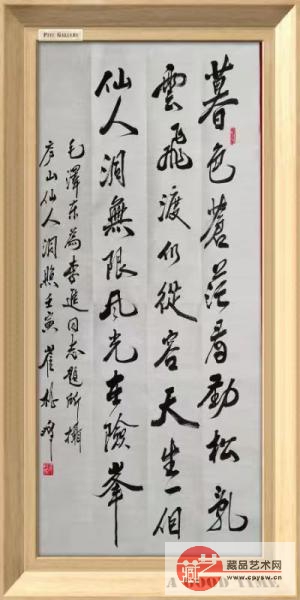 GALLERY
暮色蒼茫看劲松乱
雲飛渡仍從容天生一個
仙人洞無限风光在險峯
毛澤东為李進同志題所攝
庐山仙人洞照壬寅崔
藏品艺术网
www.cpysw.cn
A GOOD TIME